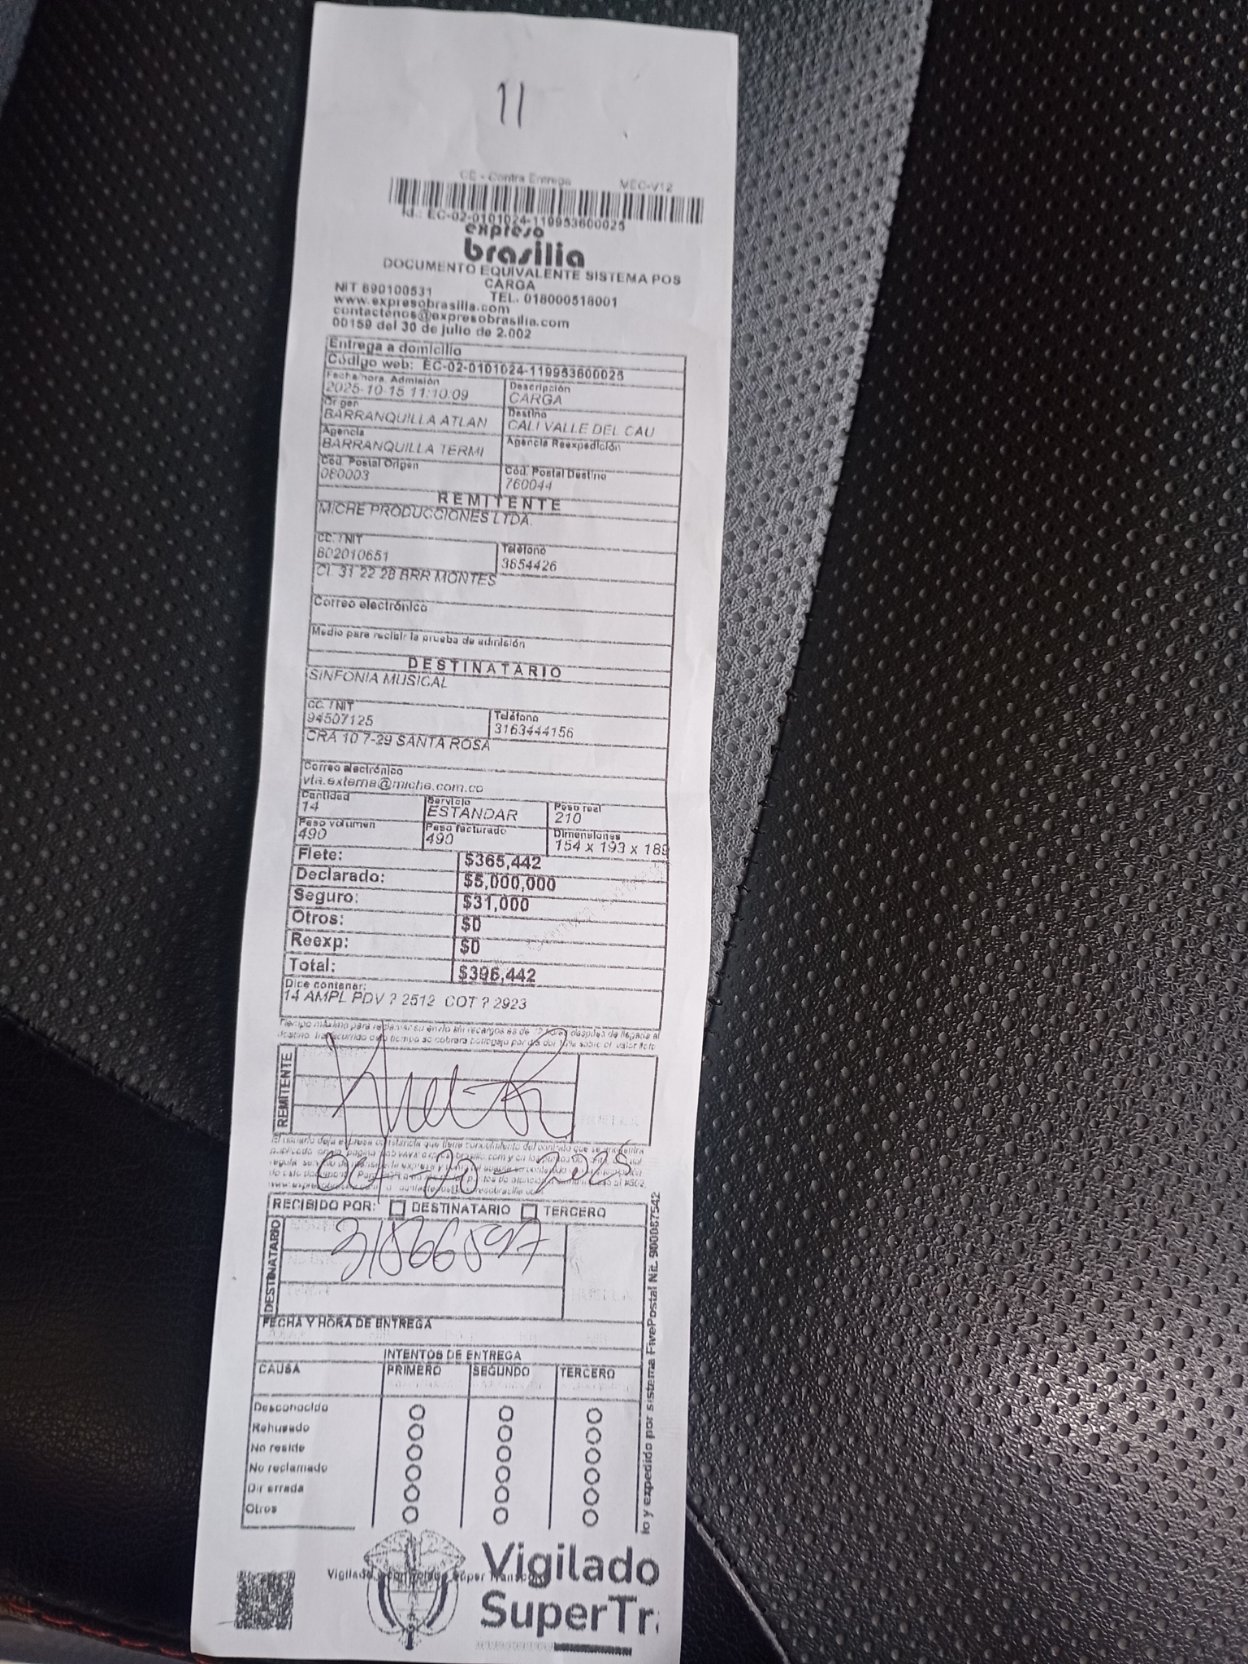 11
CE - Contra Entrega MEC-V12
Id.: EC-02-0101024-119953600025
expreso
brasilia
DOCUMENTO EQUIVALENTE SISTEMA POS
CARGA
NIT 890100531 TEL. 018000518001
www.expresobrasilia.com
contactenos@expresobrasilia.com
00159 del 30 de julio de 2.002
Entrega a domicilio
Código web: EC-02-0101024-119953600025
Fecha/hora. Admisión Descripción
2025-10-15 11:10:09 CARGA
Origen Destino
BARRANQUILLA ATLAN CALI VALLE DEL CAU
Agencia Agencia Reexpedición
BARRANQUILLA TERMI
Cód. Postal Origen Cód. Postal Destino
080003 760044
REMITENTE
MICRE PRODUCCIONES LTDA.
CC. / NIT Teléfono
802010651 3854426
CL 31 22 28 BRR MONTES
Correo electrónico
Medio para recibir la prueba de admisión
DESTINATARIO
SINFONIA MUSICAL
CC. / NIT Teléfono
94507125 3163444156
CRA 10 7-29 SANTA ROSA
Correo electrónico
vta.externa@miche.com.co
Cantidad Servicio Peso real
14 ESTANDAR 210
Peso volumen Peso facturado Dimensiones
490 490 154 x 193 x 189
Flete: $365,442
Declarado: $5,000,000
Seguro: $31,000
Otros: $0
Reexp: $0
Total: $396,442
Dice contener:
14 AMPL PDV ? 2512 COT ? 2923
REMITENTE
Oct-20-2025
RECIBIDO POR: DESTINATARIO TERCERO
DESTINATARIO
FECHA Y HORA DE ENTREGA
INTENTOS DE ENTREGA
CAUSA PRIMERO SEGUNDO TERCERO
Desconocido
Rehusado
No reside
No reclamado
Dir errada
Otros
lo y expedido por sistema FivePostal Nit. 900087542
Vigilado
SuperTr